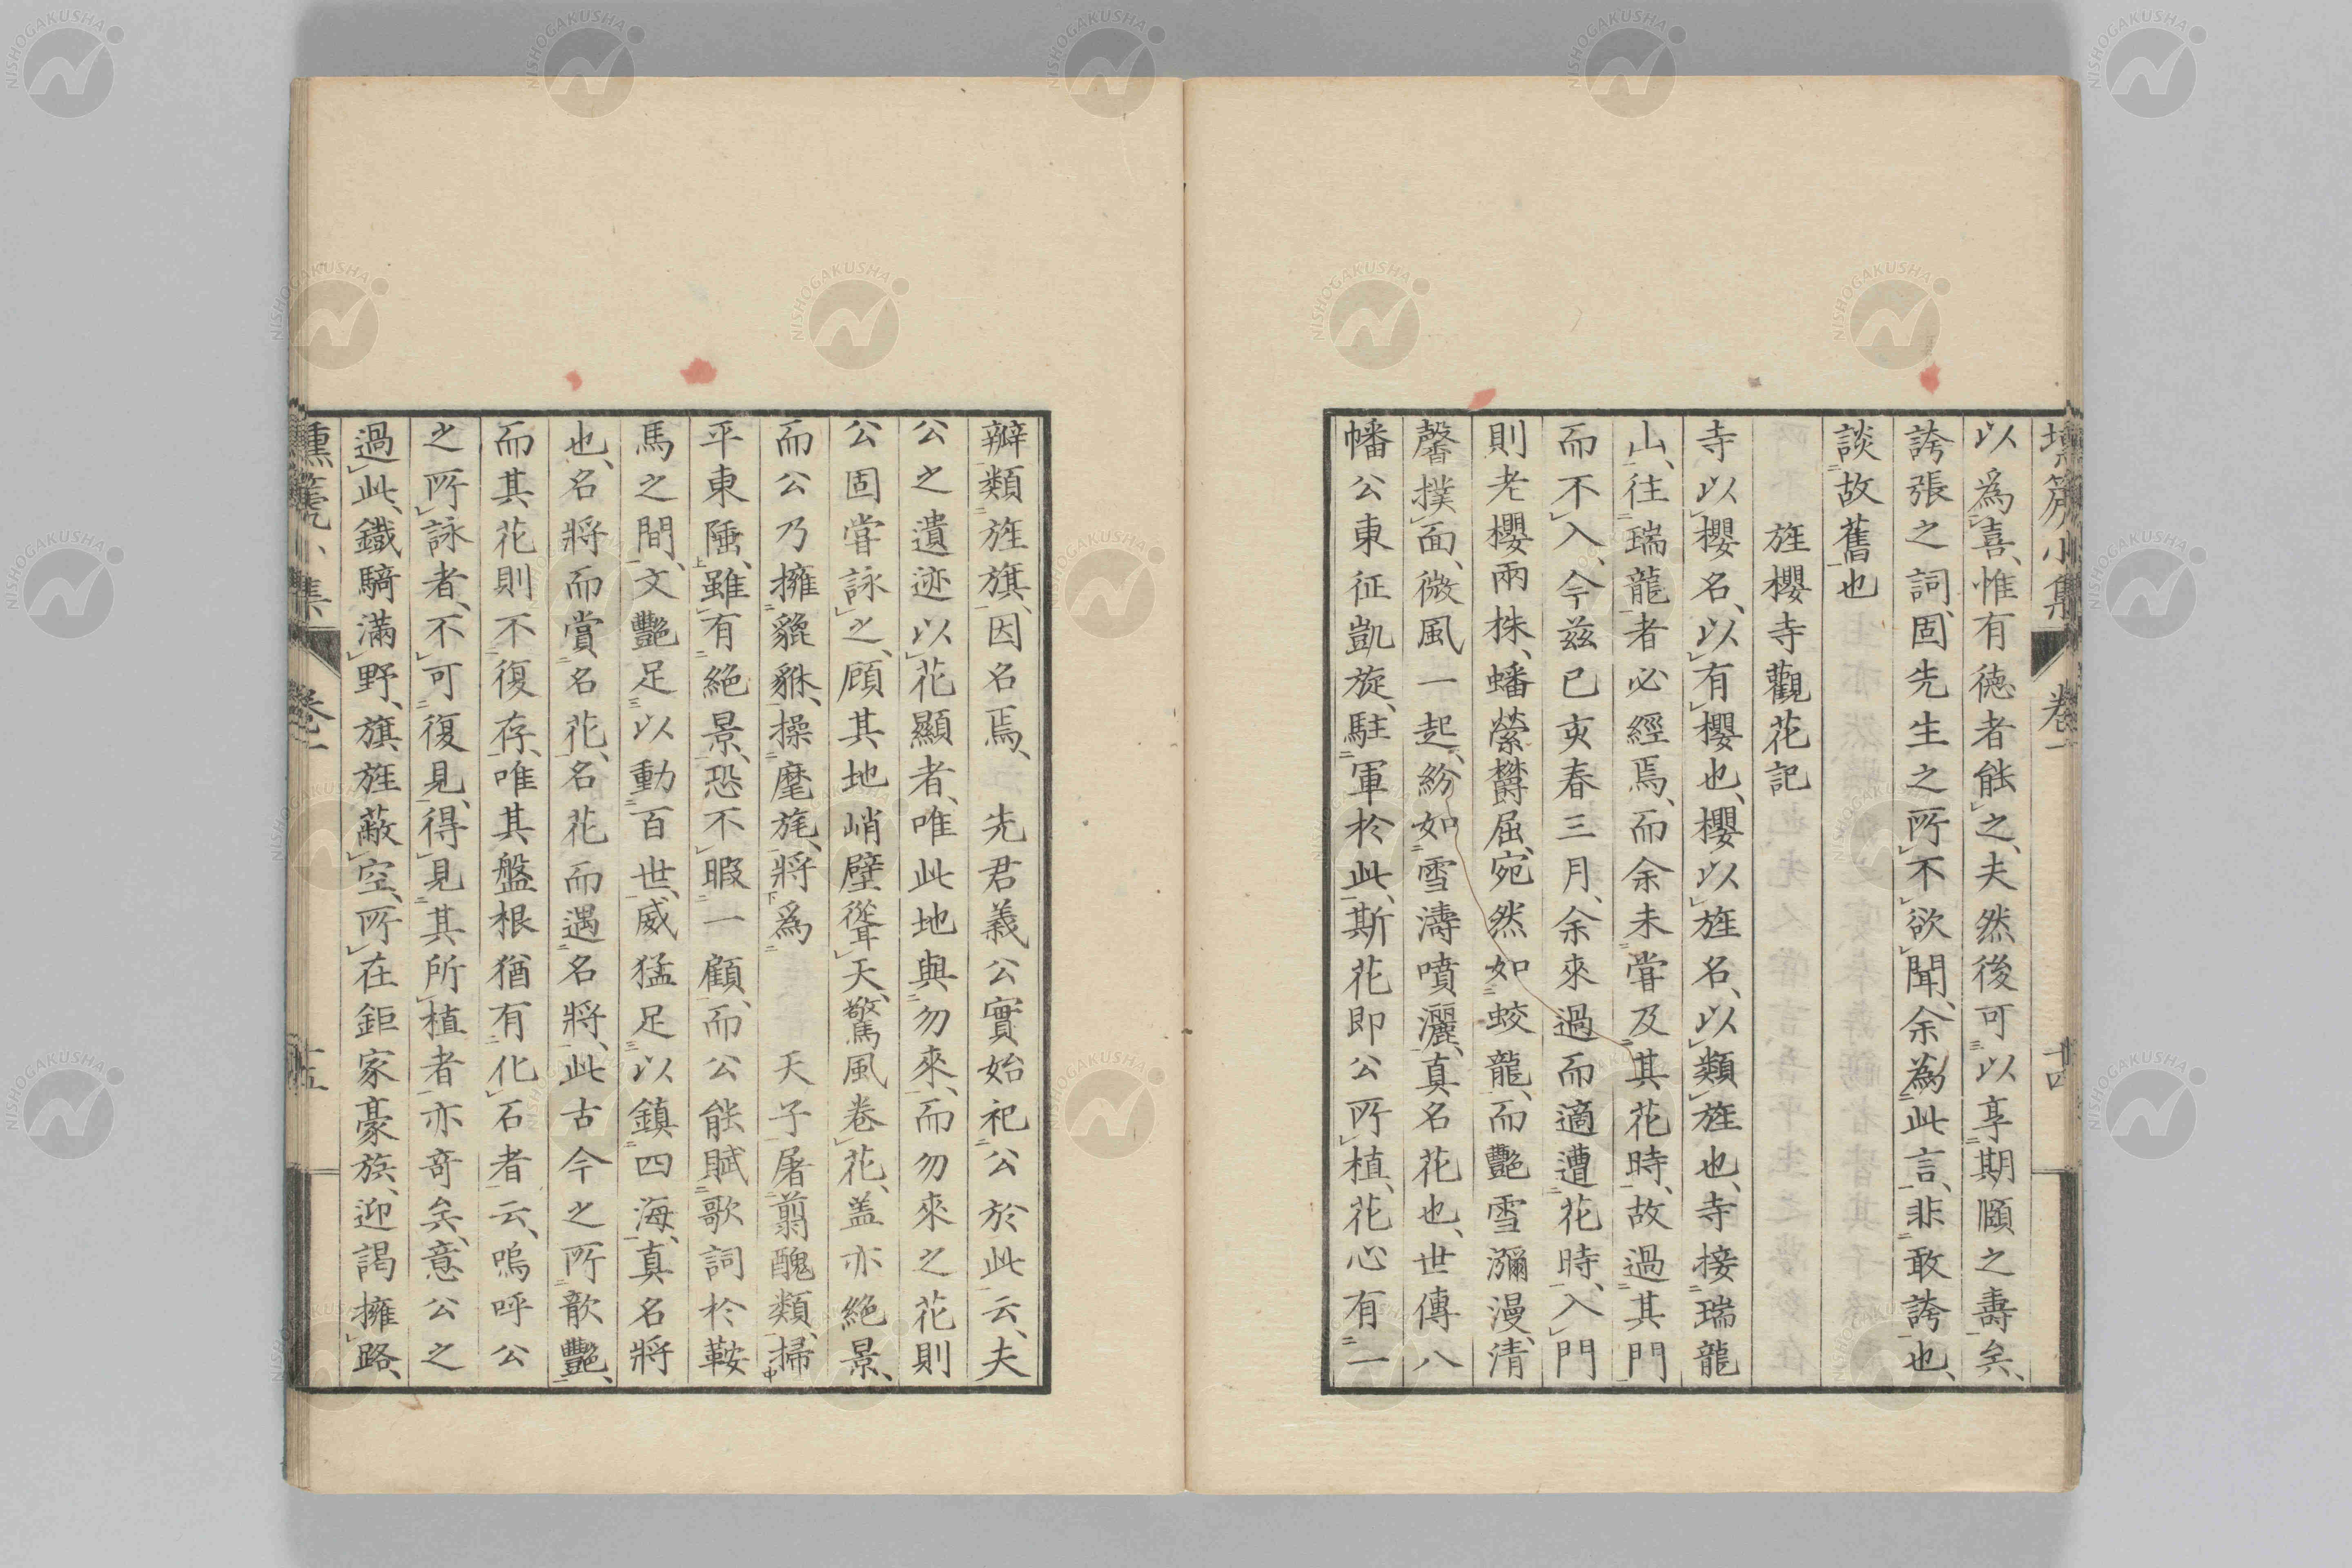 壎篪小集 卷一 十四
以爲喜、惟有德者能之、夫然後可以享期頤之壽矣、
誇張之詞、固先生之所不欲聞、余為此言、非敢誇也、
談故舊也
旌櫻寺觀花記
寺以櫻名、以有櫻也、櫻以旌名、以類旌也、寺接瑞龍
山、往瑞龍者必經焉、而余未甞及其花時、故過其門
而不入、今茲已亥春三月、余來過而適遭花時、入門
則老櫻兩株、蟠縈欝屈、宛然如蛟龍、而艷雪瀰漫、清
馨撲面、微風一起、紛如雪濤噴灑、真名花也、世傳八
幡公東征凱旋、駐軍於此、斯花即公所植、花心有一
瓣類旌旗、因名焉、先君義公實始祀公於此云、夫
公之遺迹以花顯者、唯此地與勿來、而勿來之花則
公固甞詠之、顧其地峭壁聳天、驚風卷花、盖亦絕景、
而公乃擁貔貅、操麾旄、將爲天子屠翦醜類、掃
平東陲、雖有絕景、恐不暇一顧、而公能賦歌詞於鞍
馬之間、文艷足以動百世、威猛足以鎮四海、真名將
也、名將而賞名花、名花而遇名將、此古今之所歆艷、
而其花則不復存、唯其盤根猶有化石者云、嗚呼公
之所詠者、不可復見、得見其所植者、亦竒矣、意公之
過此、鐵騎滿野、旗旌蔽空、所在鉅家豪族、迎謁擁路、
壎篪小集 卷一 十五
NISHOGAKUSHA